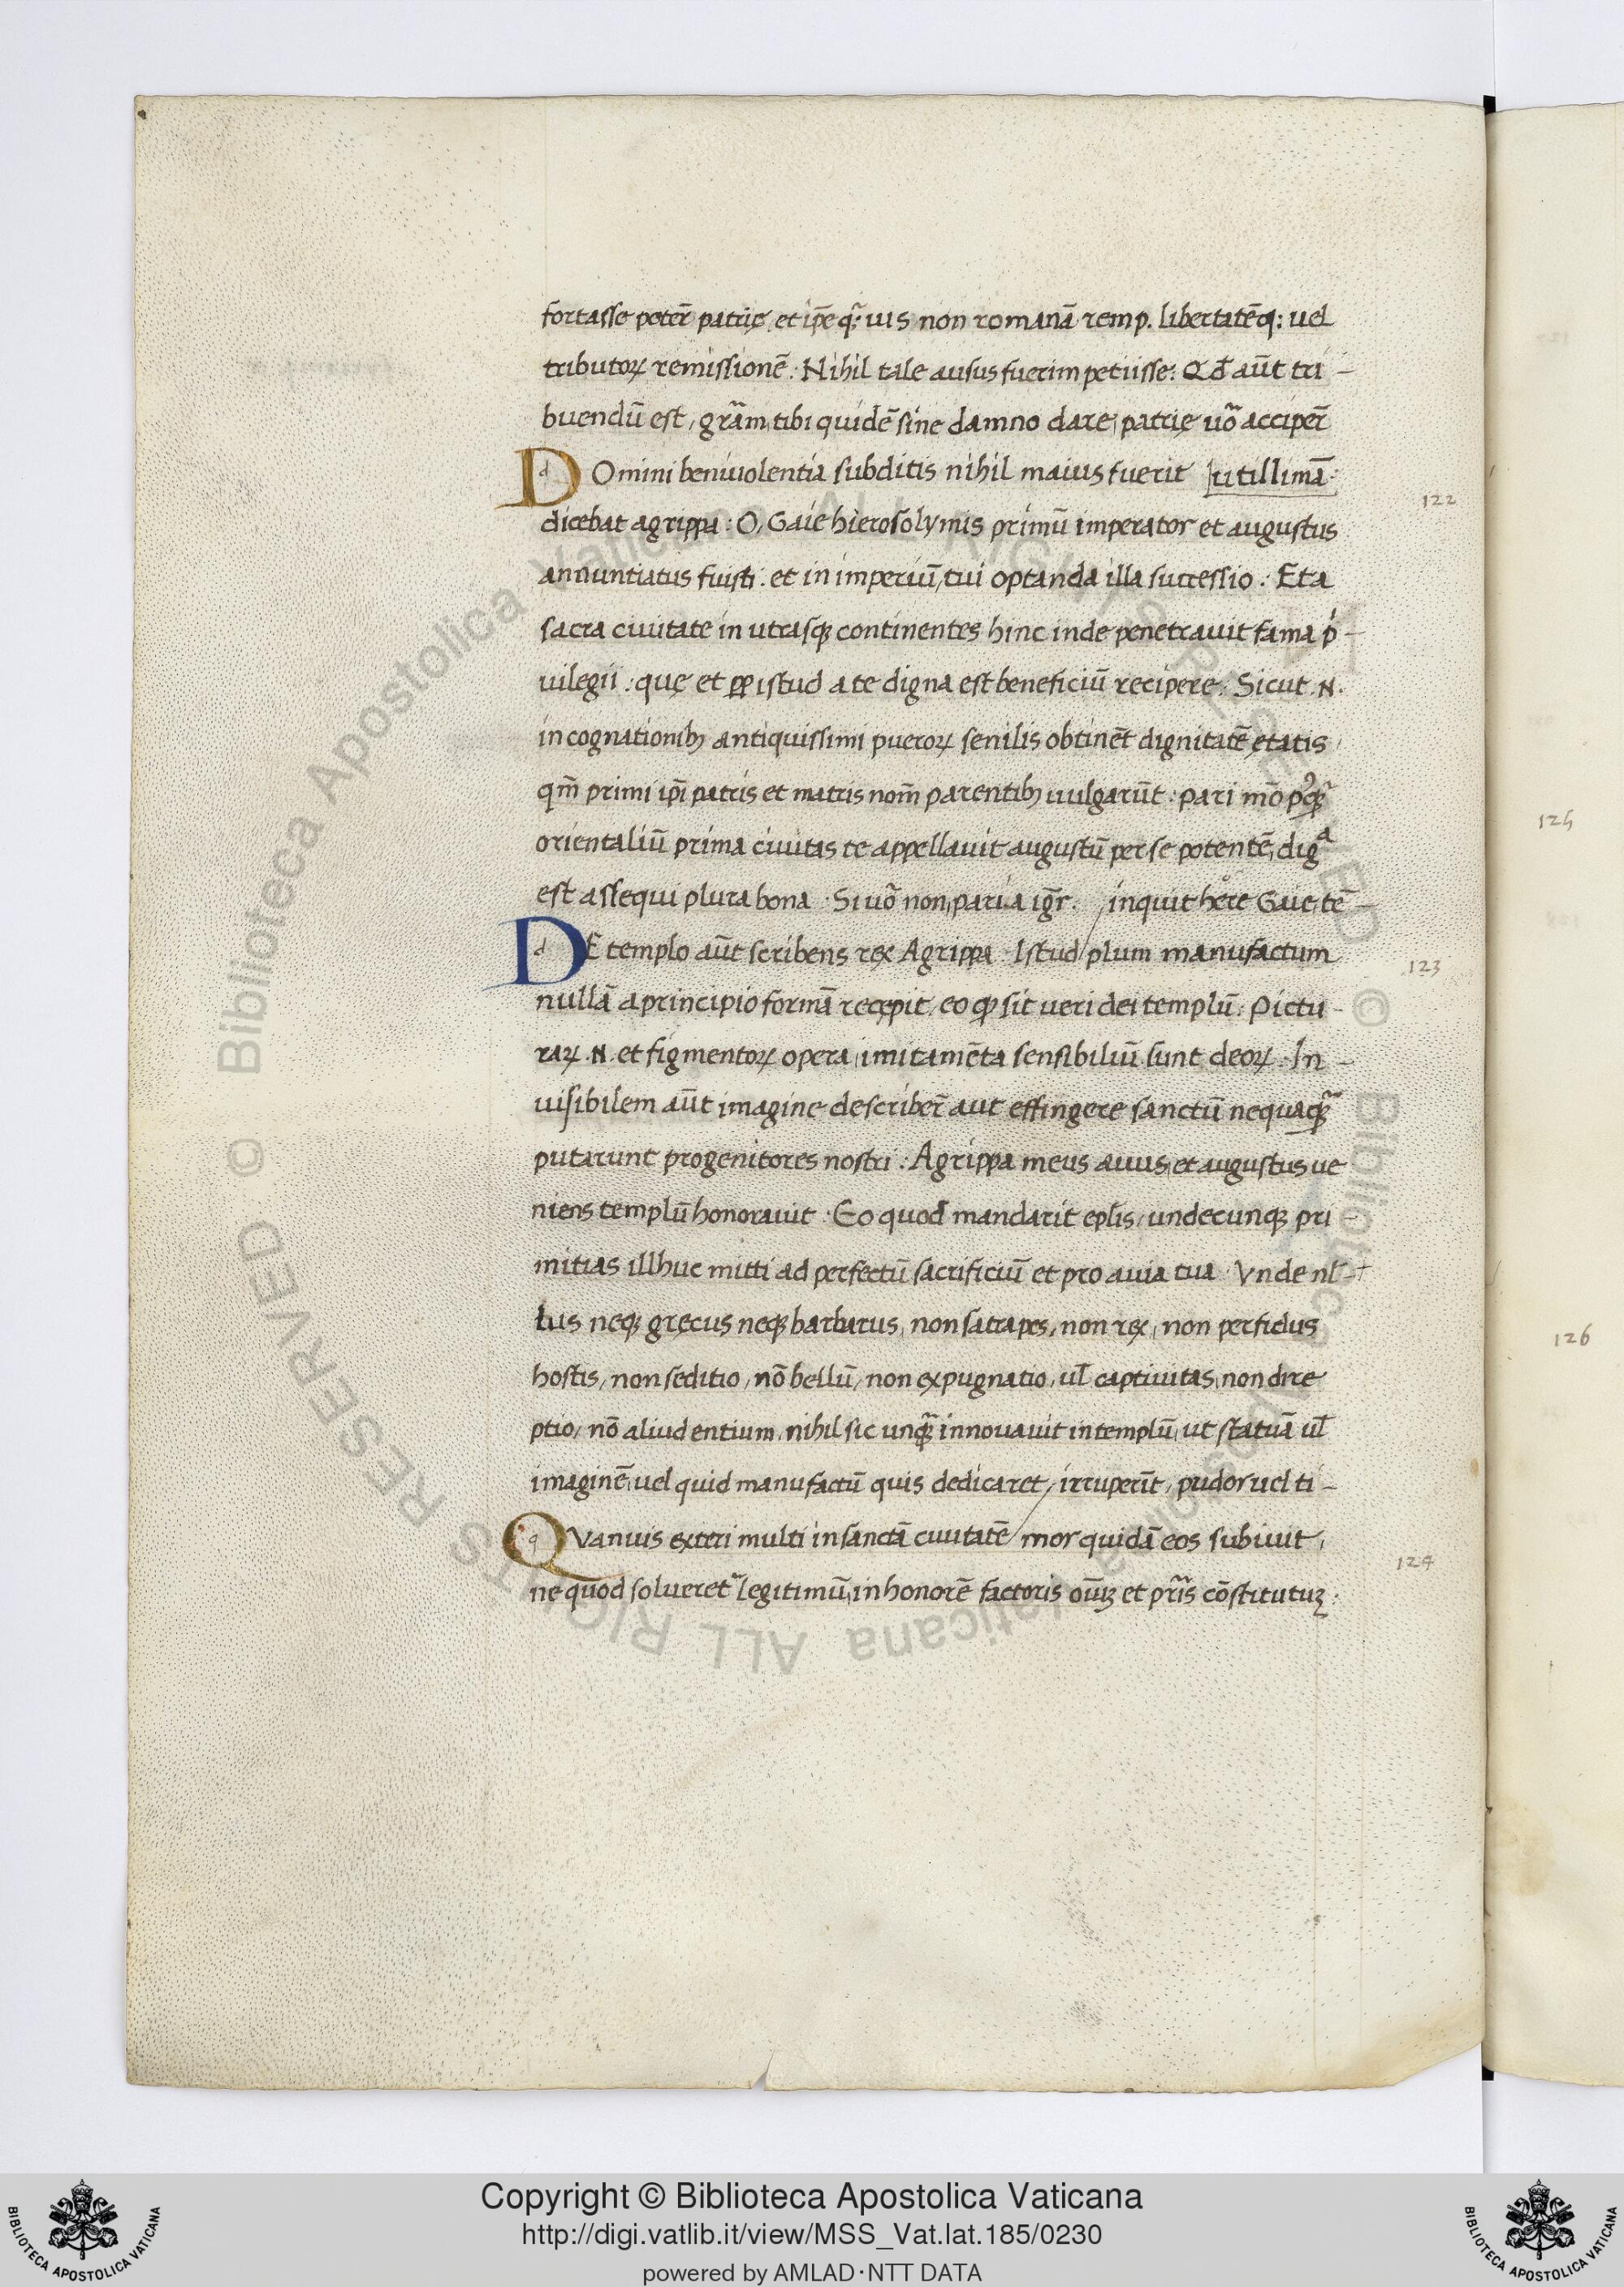 fortasse peter̄ patrię, et ip̄e q̃uis non romanā remp. libertatēq: uel
tributoꝝ remissionē: Nihil tale ausus fuerim petiisse: Qd̄ aūt tri-
buendū est, gr̄am, tibi quidē sine damno dare, patrię uo᷉ acciper̄
DOmini beniuolentia subditis nihil maius fuerit utillimā. 122
dicebat agrippa: O, Gaie hierosolymis primū imperator et augustus
annuntiatus fuisti. et in imperiū, tui optanda illa successio: Et a
sacra ciuitate in utrasꝗ continentes hinc inde penetrauit fama p̍-
uilegii: quę et ꝓp istud a te digna est beneficiū recipere: Sicut .N.
in cognationibꝫ antiquissimi pueroꝝ senilis obtinēt dignitatē ętatis,
qm̄ primi ip̄i patris et matris nom̄ parentibꝫ uulgarūt: pari mō
orientaliū prima ciuitas te appellauit augustū per se potentē, digᵃ
est assequi plura bona: Si uo᷉ non, paria igr̄. inquit here Gaie, tē-
DE templo aūt scribens rex Agrippa: Istud plum manufactum 123
nullā a principio formā recępit, eo ꝙ sit ueri dei templū: Pictu-
raꝝ .N. et figmentoꝝ opera, imitamēta sensibiliū sunt deoꝝ: In-
uisibilem aūt imagine describer̄ aut effingere sanctū nequaꝗ̃
putarunt progenitores nostri: Agrippa meus auus, et augustus ue
niens templū honorauit: Eo quod mandarit ep̄lis, undecunꝗ pri-
mitias illhuc mitti ad perfectū sacrificiū et pro auia tua: Vnde nl̄-
lus neꝗ gręcus neꝗ barbarus, non satrapes, non rex, non perfidus
hostis, non seditio, nō bellū, non expugnatio, ul̄ captiuitas, non dire
ptio, nō aliud entium, nihil sic unꝗ̃ innouauit in templū, ut statuā ul̄
imaginē, uel quid manufactū quis dedicaret, irruperīt, pudor uel ti-
QVanuis exteri multi in sanctā ciuitatē mor quidā eos subiuit, 124
ne quod solueret᷉ legitimū, in honorē factoris oīuꝫ et pr̄is cōstitutuꝫ:
125
126
© Biblioteca Apostolica Vaticana ALL RIGHTS RESERVED © Biblioteca Apostolica Vaticana ALL RIGHTS RESERVED
Copyright © Biblioteca Apostolica Vaticana
http://digi.vatlib.it/view/MSS_Vat.lat.185/0230
powered by AMLAD·NTT DATA
BIBLIOTECA APOSTOLICA VATICANA
BIBLIOTECA APOSTOLICA VATICANA